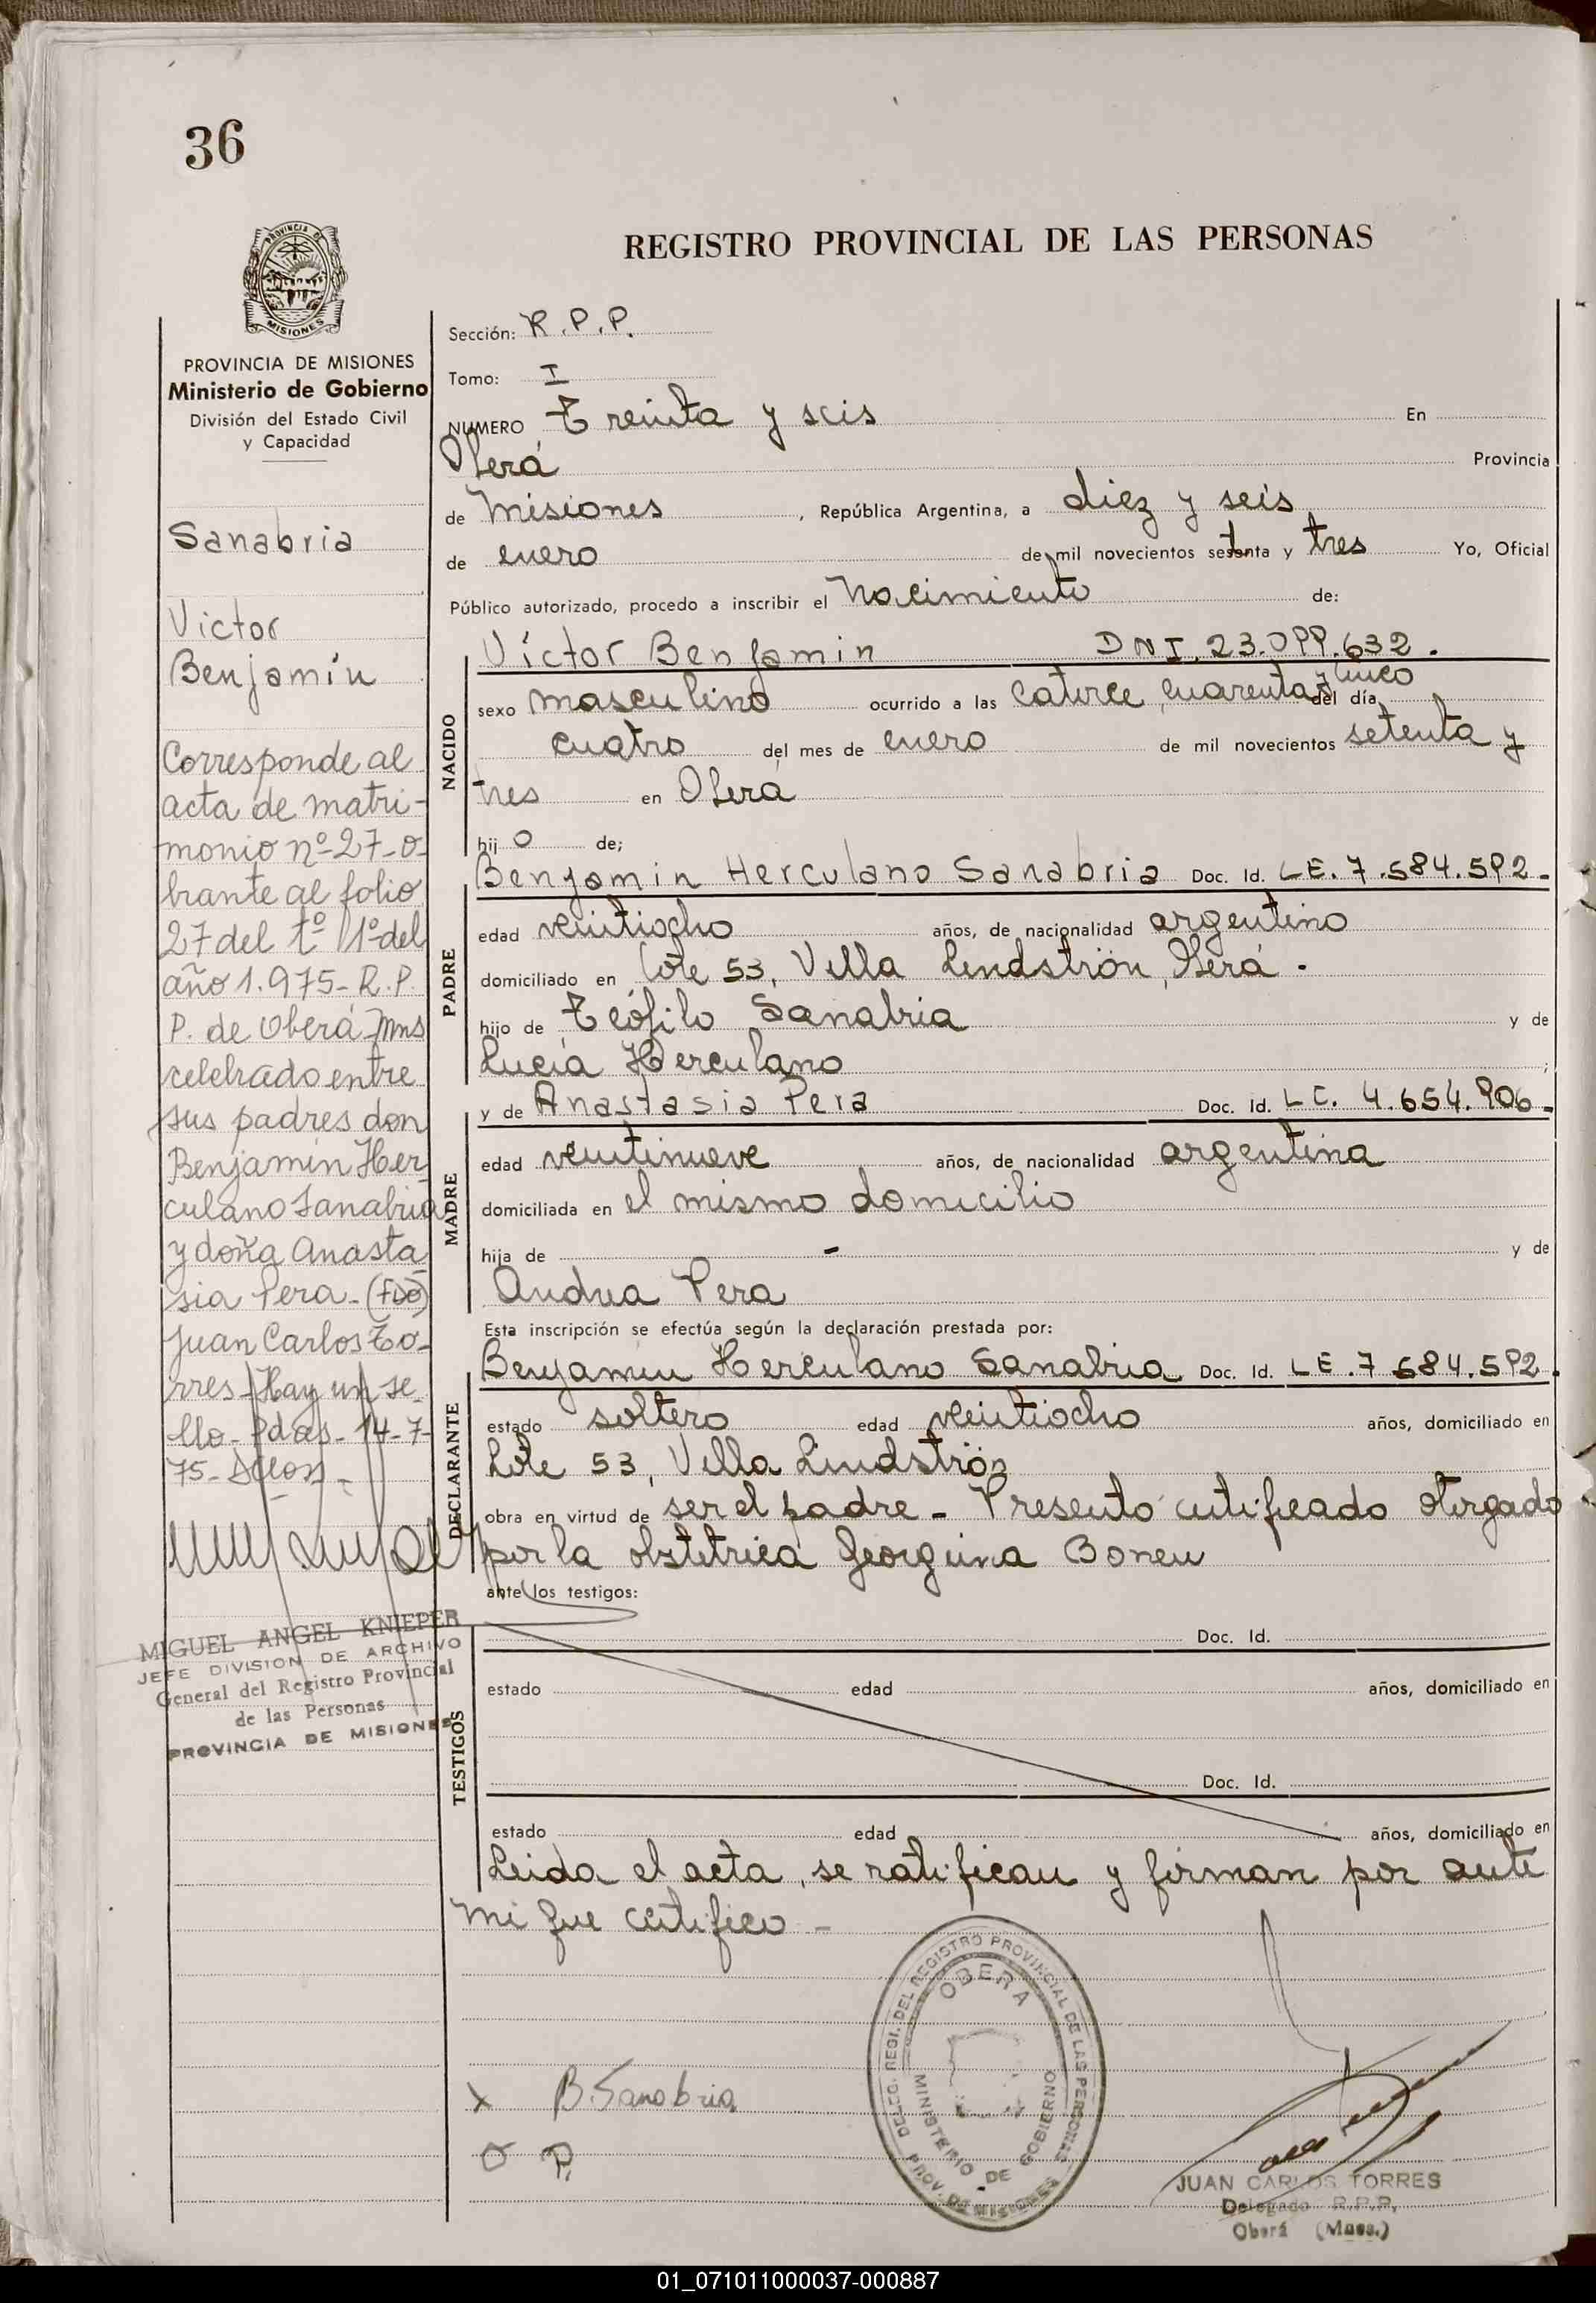 36
REGISTRO PROVINCIAL DE LAS PERSONAS
PROVINCIA DE MISIONES
Ministerio de Gobierno
División del Estado Civil
y Capacidad
Sanabria
Victor
Benjamín
Corresponde al
acta de matri-
monio nº 27-o-
brante al folio
27 del tº 1º del
año 1.975- R.P.
P. de Oberá Mns
celebrado entre
sus padres don
Benjamín Her
culano Sanabria
y doña Anasta
sia Pera - (Fdo)
Juan Carlos To-
rres - Hay un se
llo - Pdas - 14-7-
75-
MIGUEL ANGEL KNIEPER
JEFE DIVISION DE ARCHIVO
General del Registro Provincial
de las Personas
PROVINCIA DE MISIONES
Sección: R.P.P.
Tomo: I
NUMERO Treinta y seis En
Oberá Provincia
de Misiones, República Argentina, a diez y seis
de enero de mil novecientos setenta y tres Yo, Oficial
Público autorizado, procedo a inscribir el Nacimiento de:
NACIDO
Víctor Benjamin DNI. 23.099.632.
sexo masculino ocurrido a las catorce, cuarenta y cinco del día
cuatro del mes de enero de mil novecientos setenta y
tres en Oberá
hij o de;
PADRE
Benjamin Herculano Sanabria Doc. Id. LE. 7.584.592-
edad veintiocho años, de nacionalidad argentino
domiciliado en Lote 53, Villa Lindströn, Oberá.
hijo de Teófilo Sanabria y de
Lucía Herculano ;
MADRE
y de Anastasia Pera Doc. Id. LC. 4.654.906-
edad veintinueve años, de nacionalidad argentina
domiciliada en el mismo domicilio
hija de - y de
Andrea Pera
Esta inscripción se efectúa según la declaración prestada por:
DECLARANTE
Benjamin Herculano Sanabria Doc. Id. LE. 7.584.592.
estado soltero edad veintiocho años, domiciliado en
Lote 53, Villa Lindströn
obra en virtud de ser el padre - Presentó certificado otorgado
por la obstetrica Georgina Boneu
ante los testigos:
TESTIGOS
Doc. Id.
estado edad años, domiciliado en
Doc. Id.
estado edad años, domiciliado en
Leida el acta, se ratifican y firman por ante
mi que certifico -
DELEG. REGI. DEL REGISTRO PROVINCIAL DE LAS PERSONAS
OBERA
MINISTERIO DE GOBIERNO
PROV. DE MISIONES
x B. Sanabria
JUAN CARLOS TORRES
Delegado R.P.P.
Oberá (Mnes.)
01_071011000037-000887